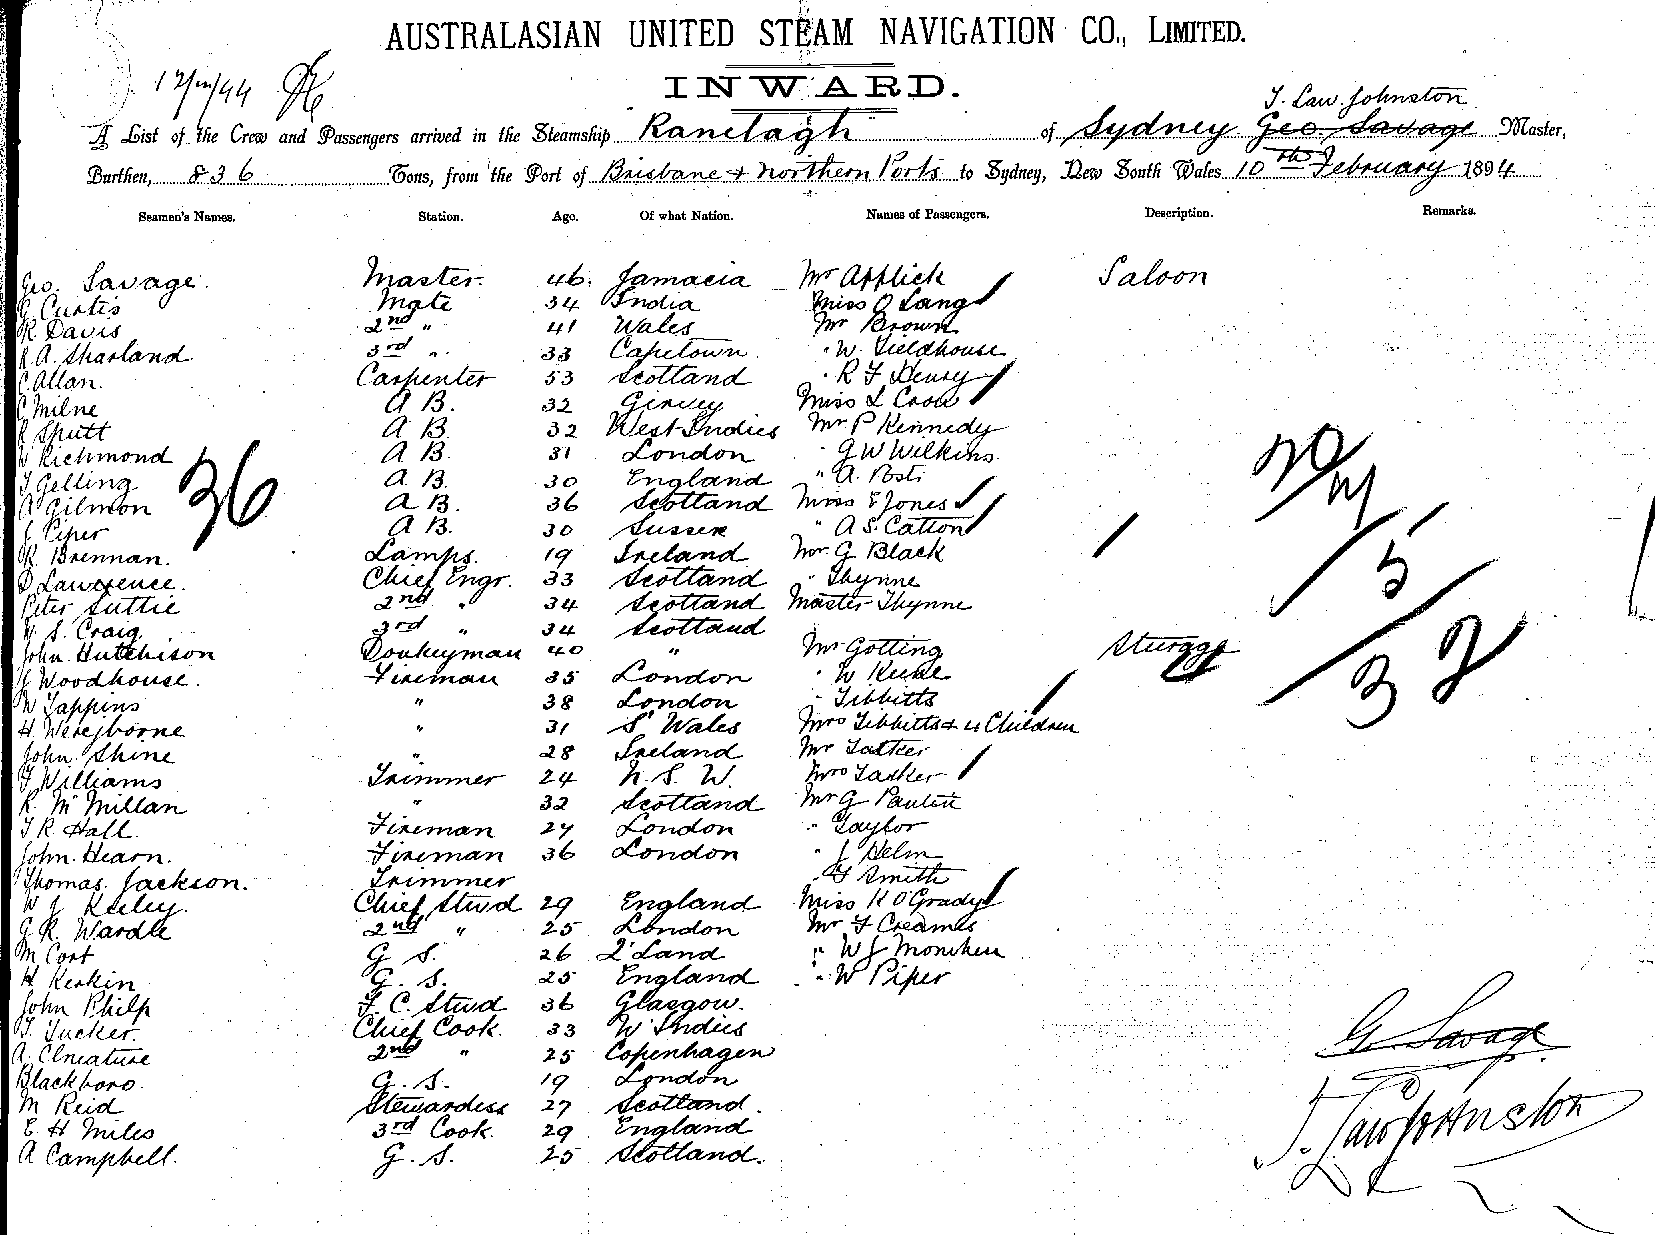 AUSTRALASIAN UNITED STEAM NAVIGATION CO., LIMITED.
INWARD.
T. Law. Johnston
A List of the Crew and Passengers arrived in the Steamship Ranelagh of Sydney Geo. Savage Master,
Burthen, 836 Tons, from the Port of Brisbane & Northern Ports to Sydney, New South Wales 10th February 1894
Seamen's Names. Station. Age. Of what Nation. Names of Passengers. Description. Remarks.
Geo. Savage. Master. 46. Jamacia Mr Afflick Saloon
G Curtis Mate 34 India Miss O Lang
R. Davis 2nd " 41 Wales Mr Brown
R. A. Sharland 3rd " 33 Capetown " W. Fieldhouse
C. Allan. Carpenter 53 Scotland " R F Henry
C Milne A B. 32 Miss L Crow
R Sputt A B. 32 West Indies Mr P Kennedy
W Richmond A B. 31 London " G W Wilkins
T Gelling A B. 30 England " A.
A Gilmon A B. 36 Scotland Miss E Jones
J Piper A B. 30 Sussex " A S. Catton
R. Brennan. Lamps. 19 Ireland Mr G Black
D Lawrence. Chief Engr. 33 Scotland " Thynne
Peter Suttie 2nd " 34 Scotland Master Thynne
S. Craig. 3rd " 34 Scotland
John Hutchison Donkeyman 40 " Mr Gotting
J Woodhouse. Fireman 35 London " W
W Tappins " 38 London " Tibbitts
H. " 31 S Wales Mrs Tibbitts & 4 Children
John Shine " 28 Ireland Mr Tasker
T Williams Trimmer 24 N. S. W. Mrs Tasker
R. McMillan " 32 Scotland Mr G
T R. Hall. Fireman 27 London " Taylor
John Hearn. Fireman 36 London " J Helm
Thomas Jackson. Trimmer " G Smith
W J Keeley. Chief Stwd 29 England Miss K O'Grady
G R. Wardle 2nd " 25 London Mr F Creames
M Cort G S. 26 Q'Land " W J
H Kerkin G. S. 25 England " W Piper
John Philp F. C. Stwd 36 Glasgow.
T. Tucker. Chief Cook. 33 W Indies
A. 2nd " 25 Copenhagen
Blackboro. G. S. 19 London
M Reid Stewardess 27 Scotland.
E H Miles 3rd Cook. 29 England
A Campbell. G. S. 25 Scotland.
36
5
32
G. Savage
T. Law Johnston